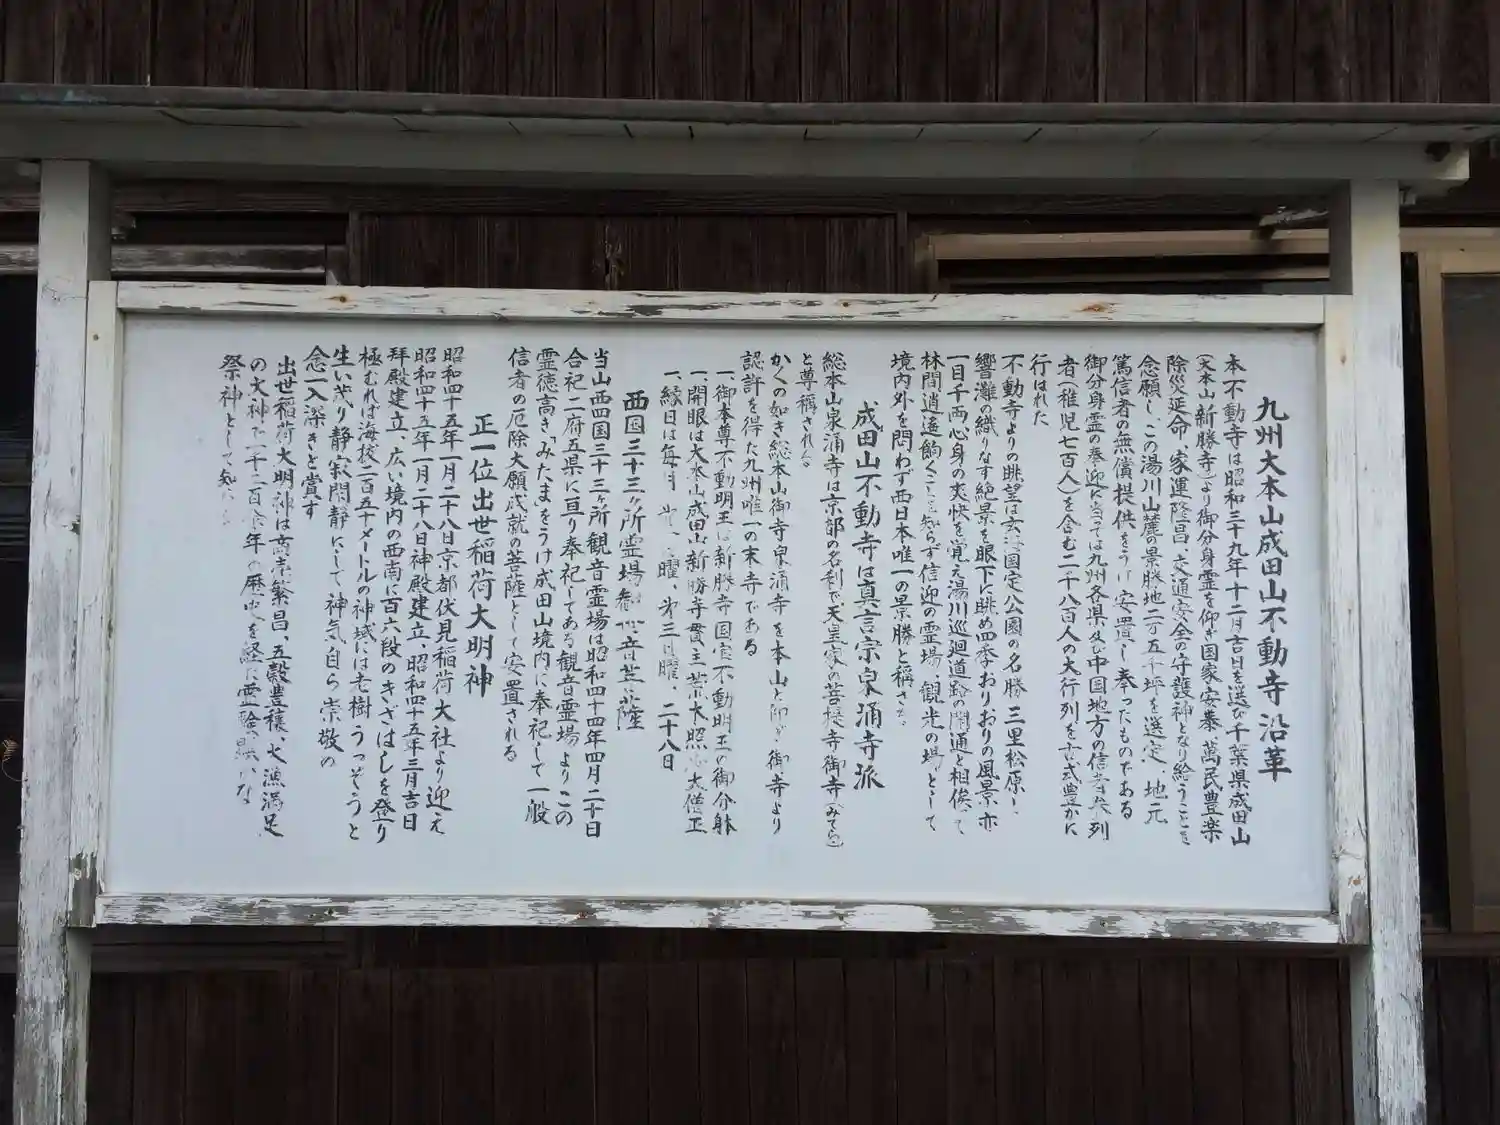 九州大本山成田山不動寺沿革
本不動寺は昭和三十九年十二月吉日を選び千葉県成田山
(大本山新勝寺)より御分身霊を仰ぎ国家安泰、萬民豊楽
除災延命、家運隆昌、交通安全の守護神となり給うことを
念願し、この湯川山麓の景勝地二万五千坪を選定、地元
篤信者の無償提供をうけ安置し奉ったものである
御分身霊の奉迎に当っては九州各県及び中国地方の信者参列
者(稚児七百人)を含む二千八百人の大行列を古式豊かに
行はれた
不動寺よりの眺望は玄海国定公園の名勝 三里松原、
響灘の織りなす絶景を眼下に眺め四季おりおりの風景、亦
一目千両心身の爽快を覚え湯川巡廻道路の開通と相俟って
林間逍遙飽くことを知らず信迎の霊場、観光の場として
境内外を問わず西日本唯一の景勝と称さ
成田山不動寺は真言宗泉涌寺派
総本山泉涌寺は京都の名刹で天皇家の菩提寺御寺(みてら)
と尊稱される。
かくの如き総本山御寺泉涌寺を本山と仰ぎ御寺より
認許を得た九州唯一の末寺である
一、御本尊不動明王は新勝寺国宝不動明王の御分躰
一、開眼は大本山成田山新勝寺貫主荒木照 大僧正
一、縁日は毎月 一 曜、第三日曜、二十八日
西国三十三ヶ所霊場 音菩薩
当山西四国三十三ヶ所観音霊場は昭和四十四年四月二十日
合祀二府五県に亘り奉祀してある観音霊場よりこの
霊徳高き「みたま」をうけ成田山境内に奉祀して一般
信者の厄除大願成就の菩薩として安置される
正一位出世稲荷大明神
昭和四十五年一月二十八日京都伏見稲荷大社より迎え
昭和四十五年一月二十八日神殿建立、昭和四十五年三月吉日
拝殿建立、広い境内の西南に百六段のきざはしを登り
極むれば海抜二百五十メートルの神域には老樹うっそうと
生い茂り静寂閑静にして神気自ら崇敬の
念一入深きと賞す
出世稲荷大明神は商売繁昌、五穀豊穣、大漁満足
の大神で二千二百余年の歴史を経た霊験 な
祭神として知